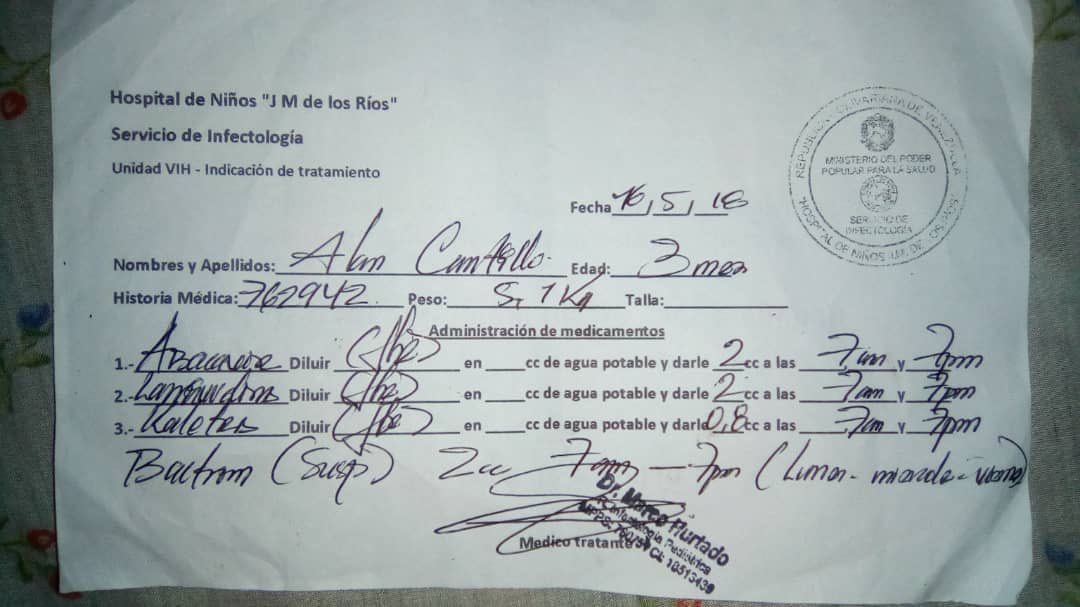 Hospital de Niños "J M de los Ríos"
Servicio de Infectología
Unidad VIH - Indicación de tratamiento
REPUBLICA BOLIVARIANA DE VENEZUELA
MINISTERIO DEL PODER
POPULAR PARA LA SALUD
SERVICIO DE
INFECTOLOGÍA
"HOSPITAL DE NIÑOS J.M. DE LOS RIOS"
Fecha 16, 5, 18
Nombres y Apellidos: Alan Edad: 3 mes
Historia Médica: 762942 Peso: 5,1 Kg Talla:
Administración de medicamentos
1.- Diluir (Jbe) en ____ cc de agua potable y darle 2 cc a las 7am y 7pm
2.- Diluir (Jbe) en ____ cc de agua potable y darle 2 cc a las 7am y 7pm
3.- Kaletra Diluir (Jbe) en ____ cc de agua potable y darle 0,8 cc a las 7am y 7pm
Bactrim (Susp) 2cc 7am - 7pm (Lunes - - )
Dr. Marco Hurtado
Infectología Pediátrica
Medico tratante